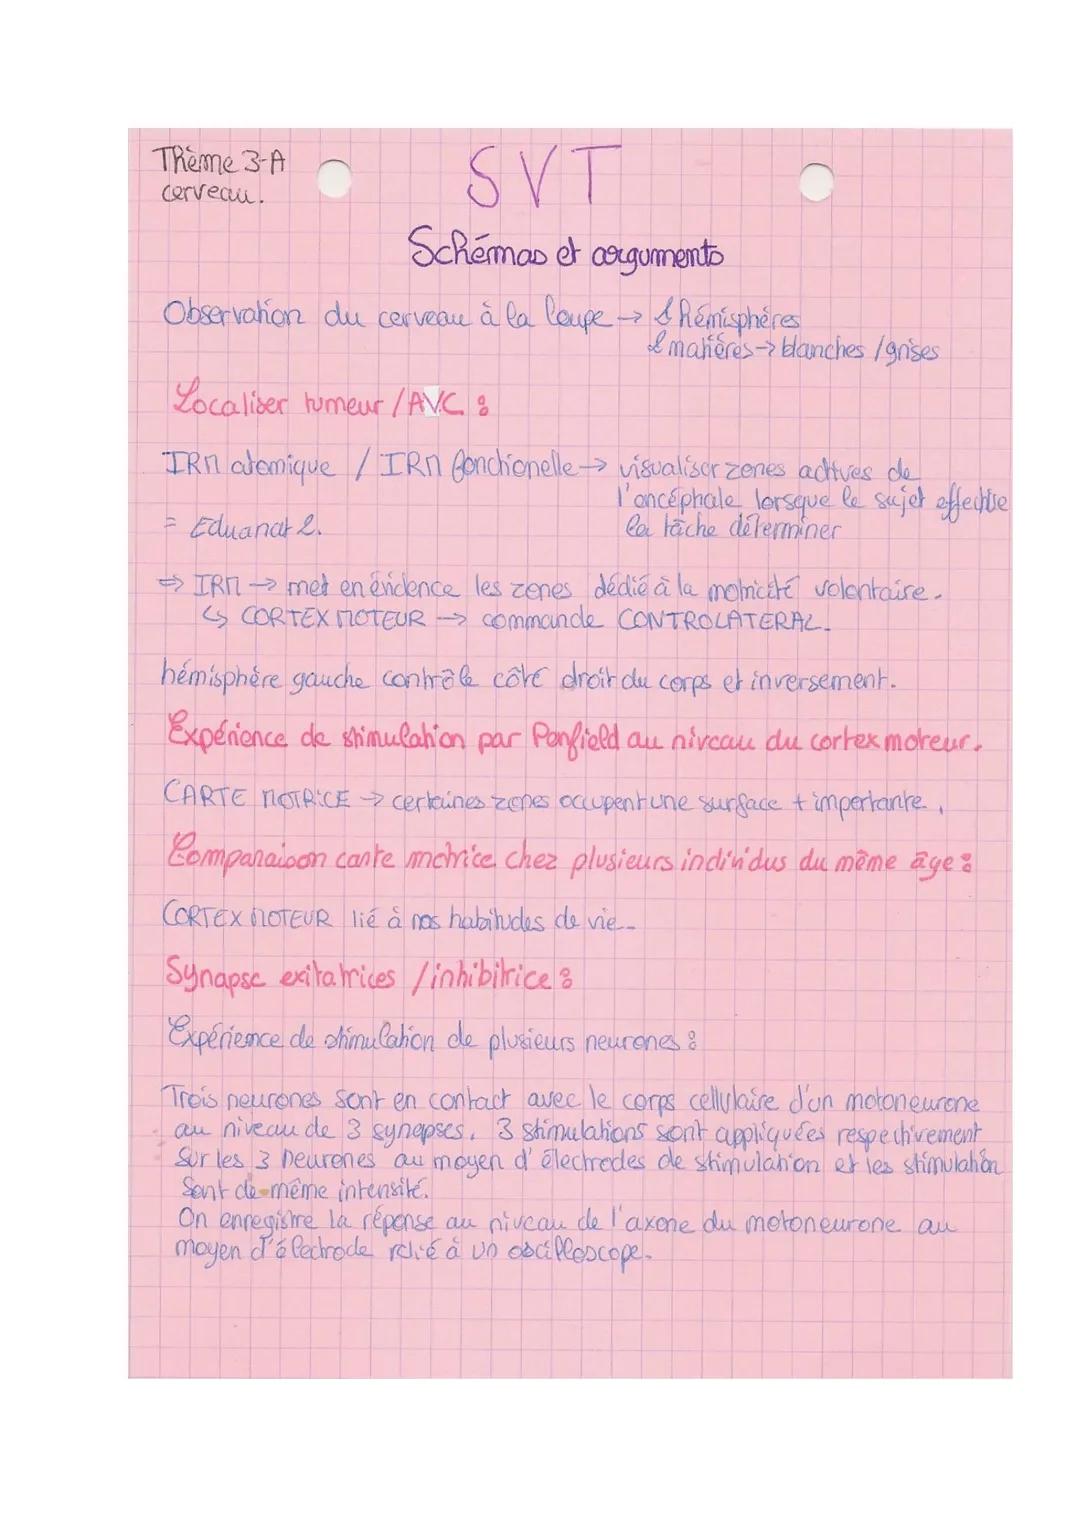 Thème 3-A
cerveau.
SVT
Schémas et arguments
Observation du cerveau à la loupe → 2 hémisphères
2 matières → blanches / grises
Localiser tumeur / AVC :
IRM atomique / IRM fonctionelle → visualiser zones actives de
l'encéphale lorsque le sujet effectue
= Eduanat 2.
la tâche déterminer
⇒ IRM → met en évidence les zones dédié à la motricité volontaire.
↳ CORTEX MOTEUR → commande CONTROLATERAL.
hémisphère gauche contrôle côté droit du corps et inversement.
Expérience de stimulation par Penfield au niveau du cortex moteur.
CARTE MOTRICE → certaines zones occupent une surface + importante.
Comparaison carte motrice chez plusieurs individus du même âge :
CORTEX MOTEUR lié à nos habitudes de vie..
Synapse exitatrices / inhibitrice :
Expérience de stimulation de plusieurs neurones :
Trois neurones sont en contact avec le corps cellulaire d'un motoneurone
au niveau de 3 synapses. 3 stimulations sont appliquées respectivement
sur les 3 neurones au moyen d'électrodes de stimulation et les stimulation
sont de même intensité.
On enregistre la réponse au niveau de l'axone du motoneurone au
moyen d'électrode relié à un oscilloscope.